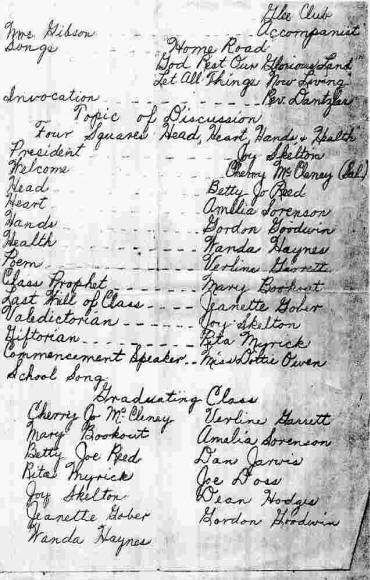 Glee Club
Mrs. Gibson Accompanist
Songs "Home Road"
"God Rest Our Glorious Land"
"Let All Things Now Living"
Invocation Rev. Dantzler
Topic of Discussion
Four Squares Head, Heart, Hands & Health
President Joy Skelton
Welcome Cherry McCleney (Sal.)
Head Betty Jo Reed
Heart Amelia Sorenson
Hands Gordon Goodwin
Health Wanda Haynes
Poem Verline Garrett
Class Prophet Mary Bookout
Last Will of Class Jeanette Gober
Valedictorian Joy Skelton
Giftorian Rita Myrick
Commencement Speaker Miss Dottie Owen
School Song
Graduating Class
Cherry Jo McCleney Verline Garrett
Mary Bookout Amalia Sorenson
Betty Joe Reed Dan Jarvis
Rita Myrick Joe Doss
Joy Skelton Dean Hodges
Jeanette Gober Gordon Goodwin
Wanda Haynes